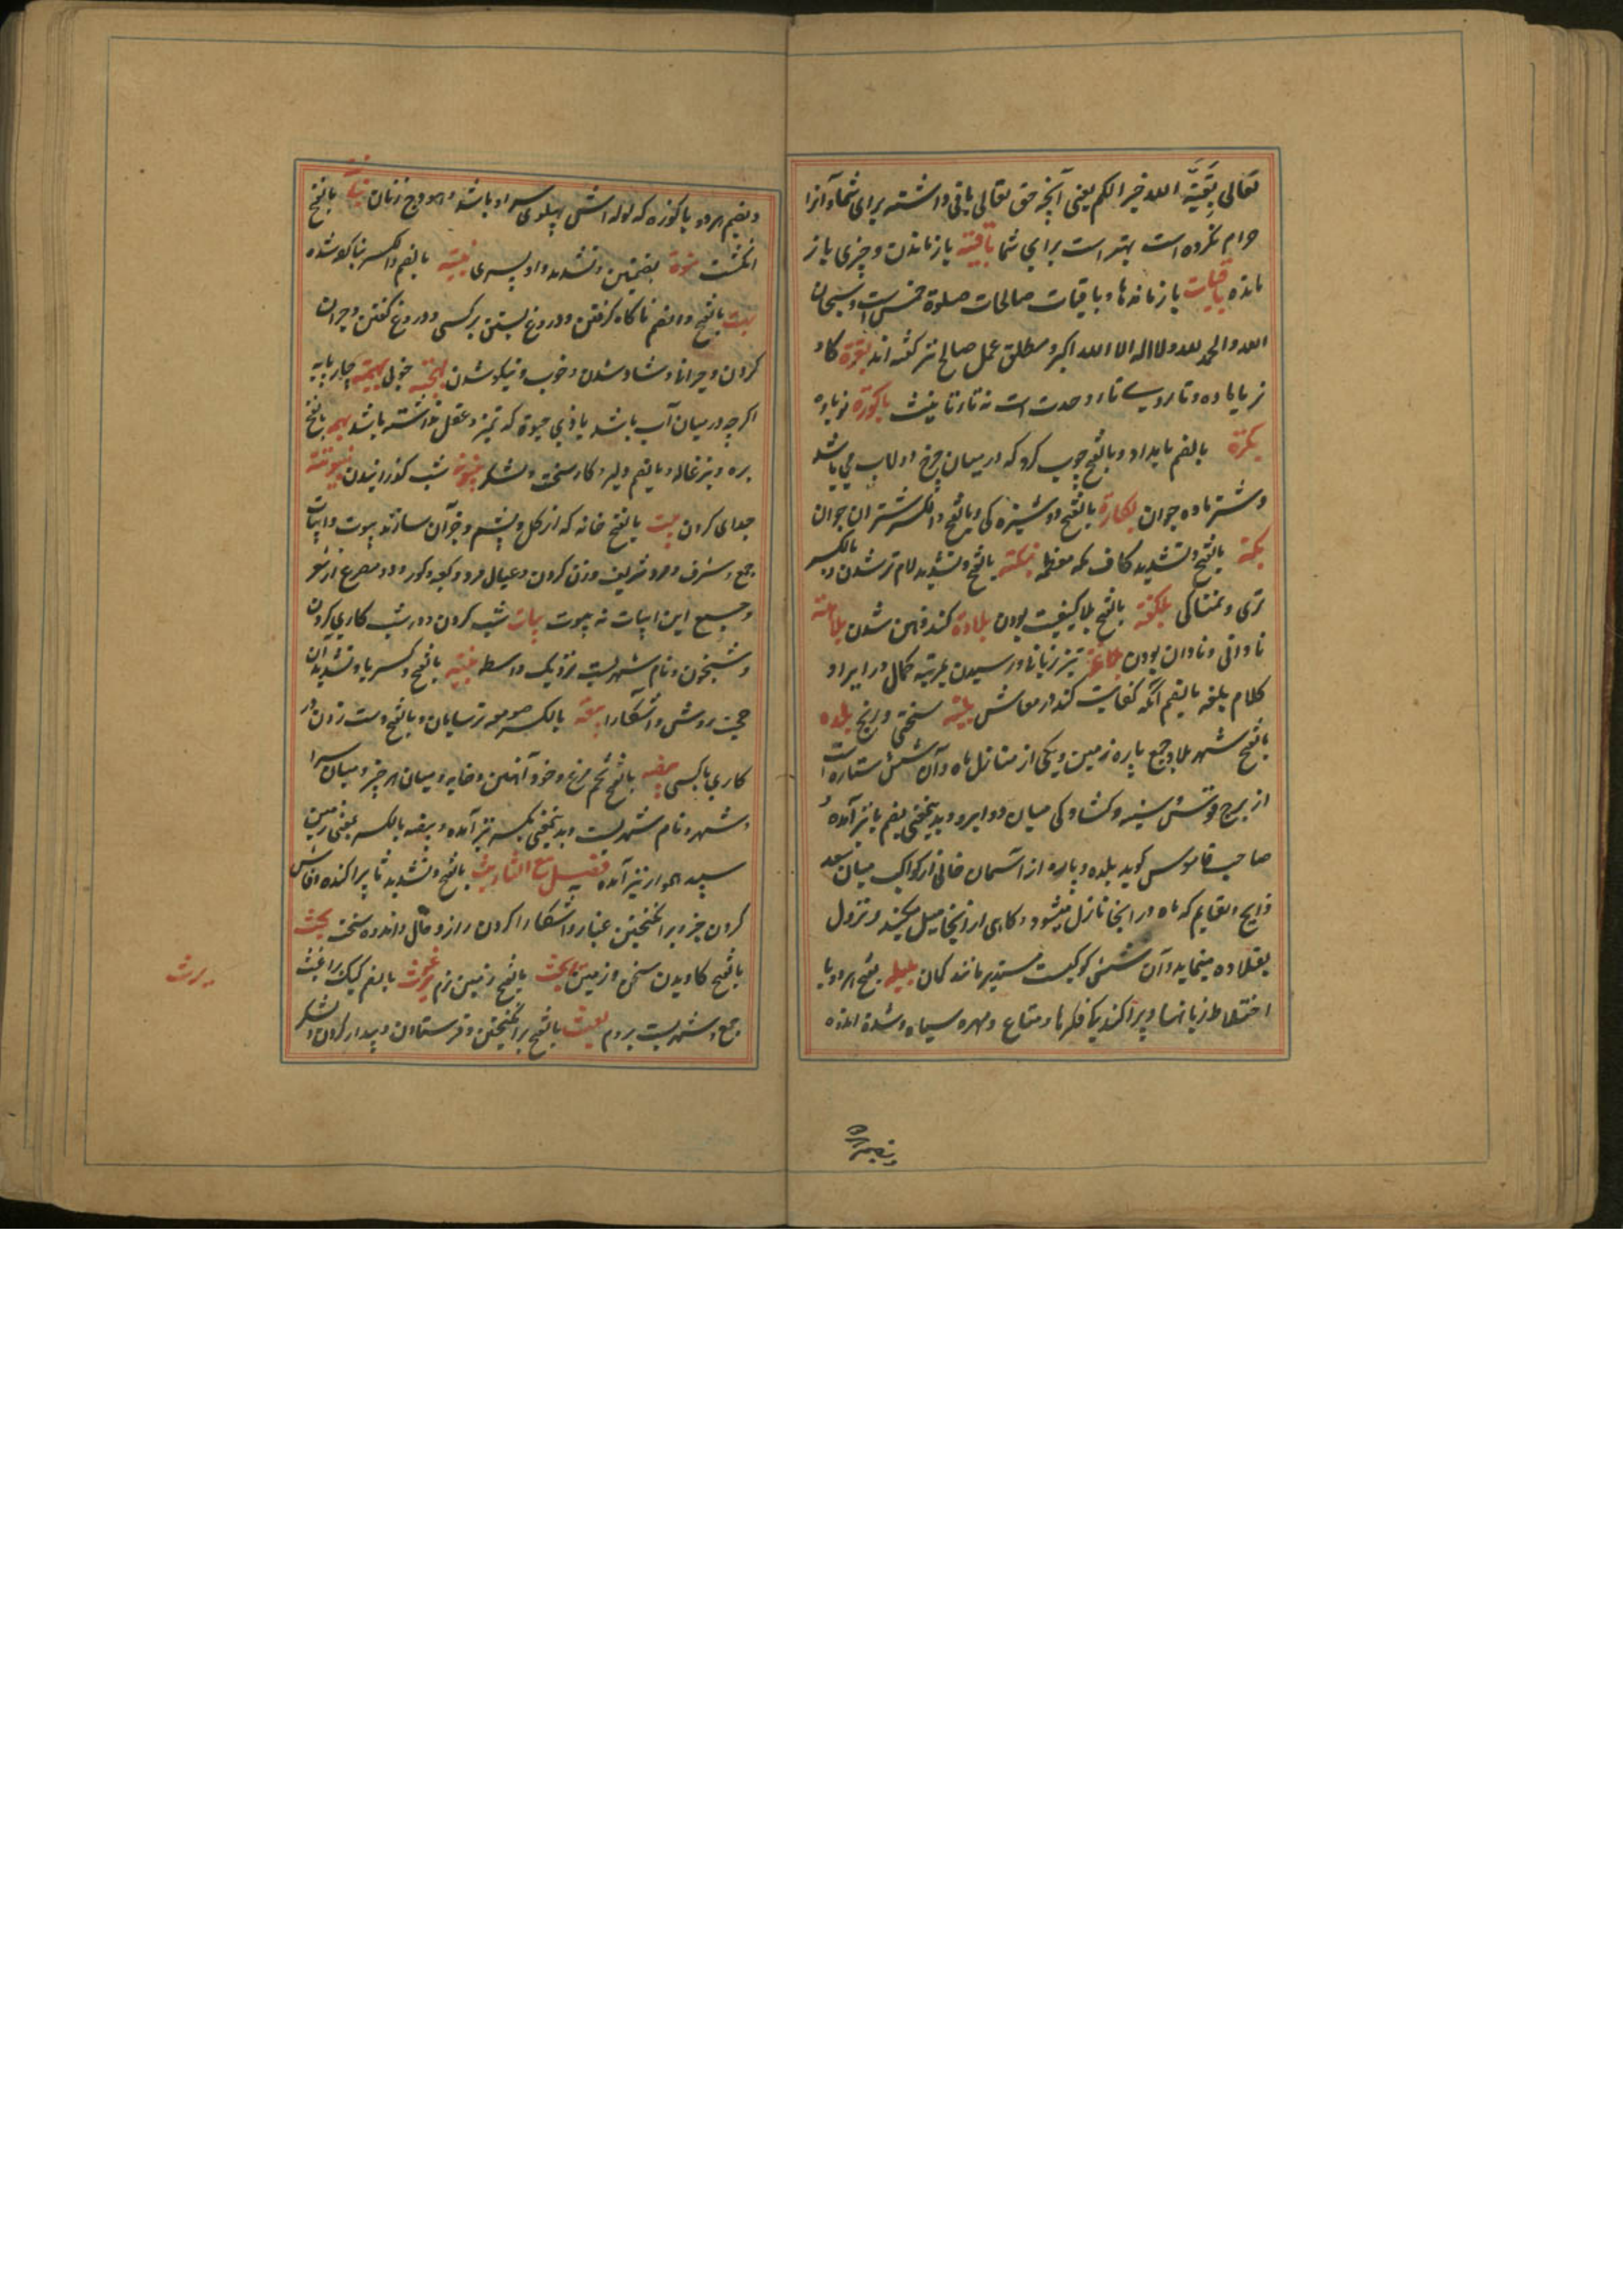 تعالی بَقِیَّة الله خیر الکم یعنی آنچه حق تعالی باقی داشته برای شما و آنرا
حرام نکرده است بهتر است برای شما باقیة باز ماندن و چیزی باز
مانده باقیات باز مانده ها و باقیات صالحات صلوة خمس است و سبحان
الله والحمد لله ولا اله الا الله اکبر و مطلق عمل صالح نیز گفته اند بقرة گاو
نر یا ماده و تا درو برای تاء وحدت است نه تاء تانیث باکورة نوباوه
بکرة بالضم بامداد و بالفتح چوب گرد که در میان چرخ دولاب می باشد
و شتر ماده جوان بکارة بالفتح دوشیزه کی و بالفتح والکسر شتران جوان
بکة بالفتح و تشدید کاف مکه معظمه بلة بالفتح و تشدید لام تر شدن و بالکسر
تری و نمناکی بلکفة بالفتح بلا کیفیت بودن بلادة کند ذهن شدن بلاهة
نادانی و نادان بودن بلاغة تیز زبانی و رسیدن بمرتبه کمال در ایراد
کلام بلغه بالضم آنکه کفایت کند در معاش بلیة سختی و رنج بلده
بالفتح شهر بلاد جمع پاره زمین و یکی از منازل ماه و آن شش ستاره است
از برج قوس سینه و کشادکی میان دو ابرو و بدینمعنی بضم با نیز آمده
صاحب قاموس گوید بلده و پاره از آسمان خالی از کواکب میان سعد
ذابح و نعایم که ماه در اینجا نازل میشود و کاهی از اینجا میل میکند و نزول
بقلاده مینماید و آن شش کوکبست مستدیر مانند کمان بلبله بفتح هر دو با
اختلاط زبانها و پراکندیکا فکرها و متاع و مهره سیاه و شدة اندوه
وبضم هر دو با کوزه که لوله اش پهلوی سر او باشد و هودج زنان بالفتح
انگشت بنوة بضمتین و تشدید واو پسری بنیة بالضم والکسر بنا کرده شده
بهت بالفتح و بالضم ناکاه گرفتن و دروغ بستن بر کسی و دروغ گفتن و حیران
کردن و حیرانی و شاد شدن و خوب و نیکو شدن بهجة خوبی بهیمة چارپایه
اگر چه در میان آب باشد یا ذی حیوة که تمیز و عقل نداشته باشد بهمه بالفتح
بره و بزغاله و بالضم دلیر و کار سخت و لشکر بیتوتة شب گذرانیدن بینونة
جدای کردن بیت بالفتح خانه که از گل و پشم و جز آن سازند بیوت و ابیات
جمع و شرف و مرد شریف و زن کردن و عیال مرد و کعبه و گور و دو مصرع از شعر
و جمع این ابیات نه بیوت بیات شب کردن و در شب کاری کردن
و شبخون و نام شهریست نزدیک واسط بینة بالفتح وکسر یا و تشدید آن
حجت روشن و آشکارا بیعة بالکسر صومعه ترسایان و بالفتح دست زدن در
کاری با کسی بیضه بالفتح تخم مرغ و خود آهنین و خایه و میان هر چیز و میان سرا
و شهر و نام شهریست و بدینمعنی بکسر نیز آمده و بیضه بالکسر بمعنی زمین
سپید هموار نیز آمده فصل مع الثا بث بالفتح و تشدید ثا پراکنده و فاش
کردن خبر و برانگیختن غبار و آشکارا کردن راز و حال و اندوه سخت بحث
بالفتح کاویدن سخن و زمین برث بالفتح زمین نرم برغوث بالضم کیک براغیث
جمع و شهریست بروم بعث بالفتح برانگیختن و فرستادن و بیدار کردن و لشکر
برث
وبضم هر دو